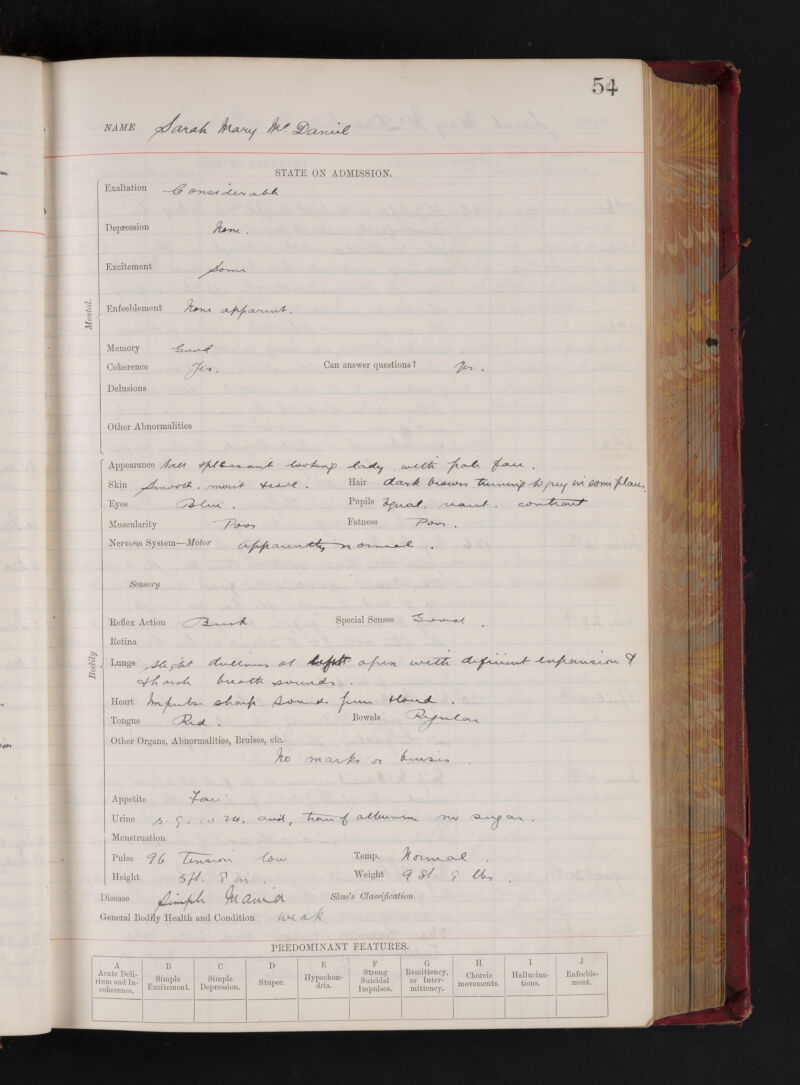 54
NAME Sarah Mary Mc Daniel
STATE ON ADMISSION.
Mental.
Exaltation Considerable
Depression None.
Excitement Some
Enfeeblement None apparent.
Memory Good
Coherence Yes. Can answer questions? Yes.
Delusions
Other Abnormalities
Bodily
Appearance pleasant looking lady with pale face.
Skin Smooth, moist Hair dark brown turning to grey in some places
Eyes Blue. Pupils Equal, contract
Muscularity Poor Fatness Poor.
Nervous System—Motor Apparently normal.
Sensory
Reflex Action Brisk Special Senses Good.
Retina
Lungs Slight dullness at apex with deficient expansion &
harsh breath sounds.
Heart Impulse sharp. Sounds loud.
Tongue Red. Bowels Regular
Other Organs, Abnormalities, Bruises, etc.
No marks or bruises.
Appetite Fair
Urine s. g. 1024, acid, trace of albumin no sugar.
Menstruation
Pulse 96 Tension low Temp. Normal.
Height 5ft. 8 in. Weight 9 St. 9 lbs.
Disease Simple Mania Skae's Classification
General Bodily Health and Condition Weak
PREDOMINANT FEATURES.
A B C D E F G H I J
Acute Delirium and Incoherence. Simple Excitement. Simple Depression. Stupor. Hypochondria. Strong Suicidal Impulses. Remittency, or Intermittency. Choreic movements. Hallucinations. Enfeeblement.